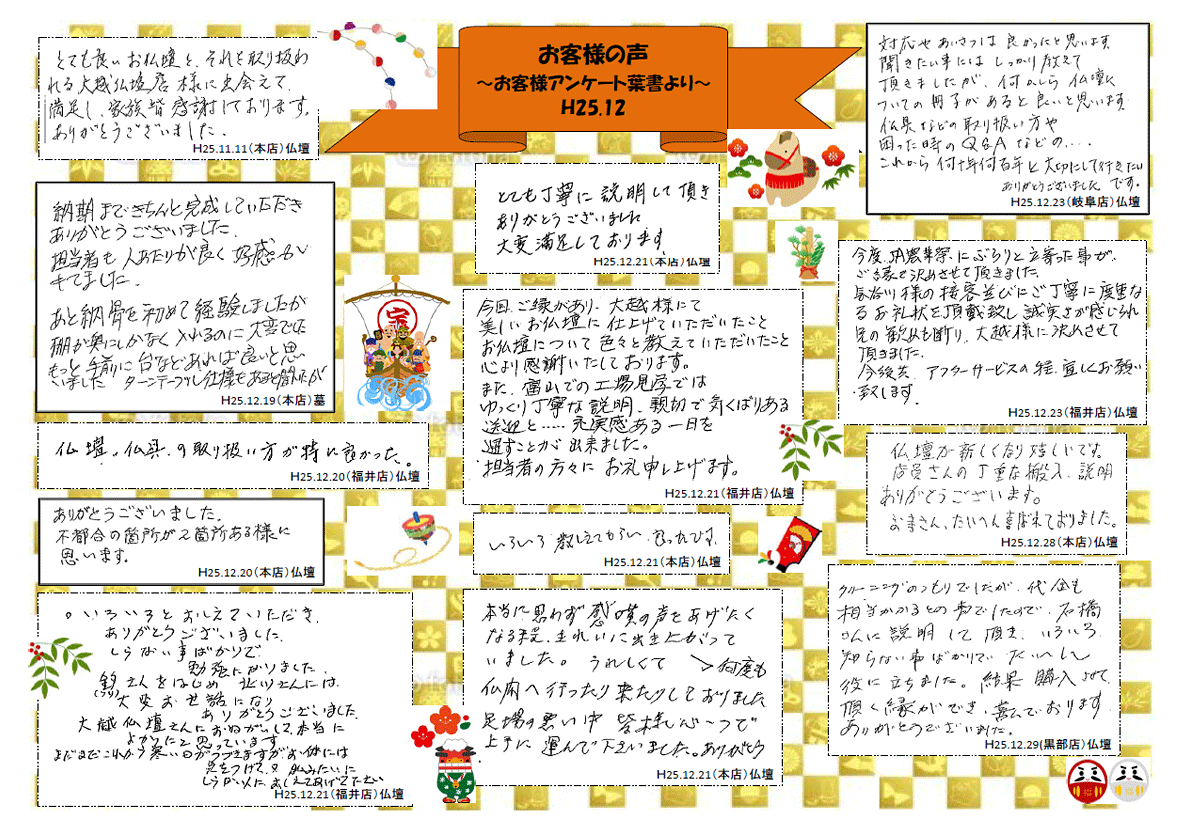 お客様の声
～お客様アンケート葉書より～
H25.12
とても良い お仏壇と、それを取り扱わ
れる大越仏壇店 様に出会えて、
満足し、家族皆 感謝しております。
ありがとうございました。
H25.11.11(本店)仏壇
納期まできちんと完成していただき
ありがとうございました。
担当者も 人あたりが良く 好感が
もてました。
あと納骨を初めて経験しましたが
棚が奥にしかなく 入れるのに大変でした
もっと手前に台などあれば良いと思
いました ターンテーブル仕様もあると聞いたが
H25.12.19(本店)墓
仏壇、仏具の取り扱い方が特に良かった。
H25.12.20(福井店)仏壇
ありがとうございました。
不都合の箇所が2箇所ある様に
思います。
H25.12.20(本店)仏壇
いろいろとおしえていただき、
ありがとうございました。
しらない事ばかりで
勉強になりました。
さんをはじめ 北川さんには、
大変お世話になり
ありがとうございました。
大越仏壇さんにおねがいして本当に
よかったと思っています。
まだまだこれから寒い日がつづきますがお体には
気をつけて、又 私みたいに
しらない人に、おしえてあげてください
H25.12.21(福井店)仏壇
とても丁寧に 説明して頂き
ありがとうございました
大変満足しております。
H25.12.21(本店)仏壇
今回ご縁があり、大越様にて
美しいお仏壇に仕上げていただいたこと
お仏壇について色々と教えていただいたこと
心より感謝いたしております。
また、富山での工場見学では
ゆっくり丁寧な説明、親切で気くばりある
送迎と……充実感ある一日を
過すことが出来ました。
担当者の方々に お礼申し上げます。
H25.12.21(福井店)仏壇
いろいろ教えてもらい、
H25.12.21(本店)仏壇
本当に思わず感嘆の声をあげたく
なる程、きれいに出き上がって
いました。うれしくて 何度も
仏間へ行ったり来たりしておりました
足場の悪い中 皆様心一つで
上手に運んで下さいました。ありがとう
H25.12.21(本店)仏壇
対応やあいさつは 良かったと思います
聞きたい事には しっかり教えて
頂きましたが、何かしら 仏壇に
ついての冊子があると良いと思います
仏具などの取り扱い方や
困った時のQ&Aなどの....
これから何十年何百年と大切にして行きたい
ありがとうございました です。
H25.12.23(岐阜店)仏壇
今度、農業祭にぶらりと立寄った事が、
ご縁で決めさせて頂きました。
長谷川様の接客並びにご丁寧に度重な
るお礼状を頂戴致し誠実さが感じられ
兄の勧めも断り、大越様に決めさせて
頂きました。
今後共、アフターサービスの程、宜しくお願い
致します。
H25.12.23(福井店)仏壇
仏壇が新しくなり嬉しいです。
店員さんの丁重な搬入、説明
ありがとうございます。
お寺さん、たいへん喜ばれておりました。
H25.12.28(本店)仏壇
クリーニングのつもりでしたが、代金も
相当かかるとの事でしたので、石橋
さんに説明して頂き、いろいろ
知らない事ばかりで、たいへん
役に立ちました。結果 購入させて
頂く縁ができ、喜んでおります
ありがとうございました。
H25.12.29(黒部店)仏壇
宝